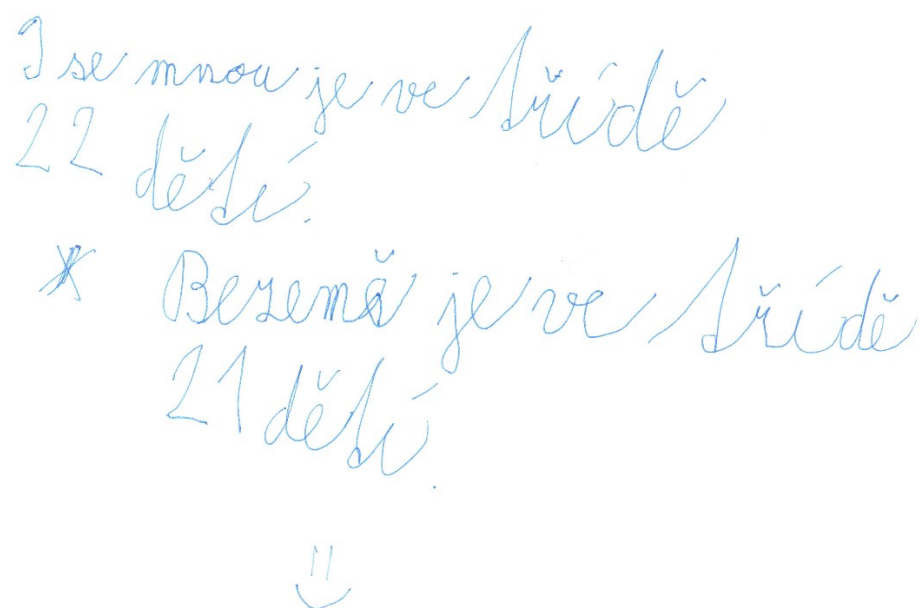 I se mnou je ve třídě
22 dětí.
* Bezemě je ve třídě
21 dětí.